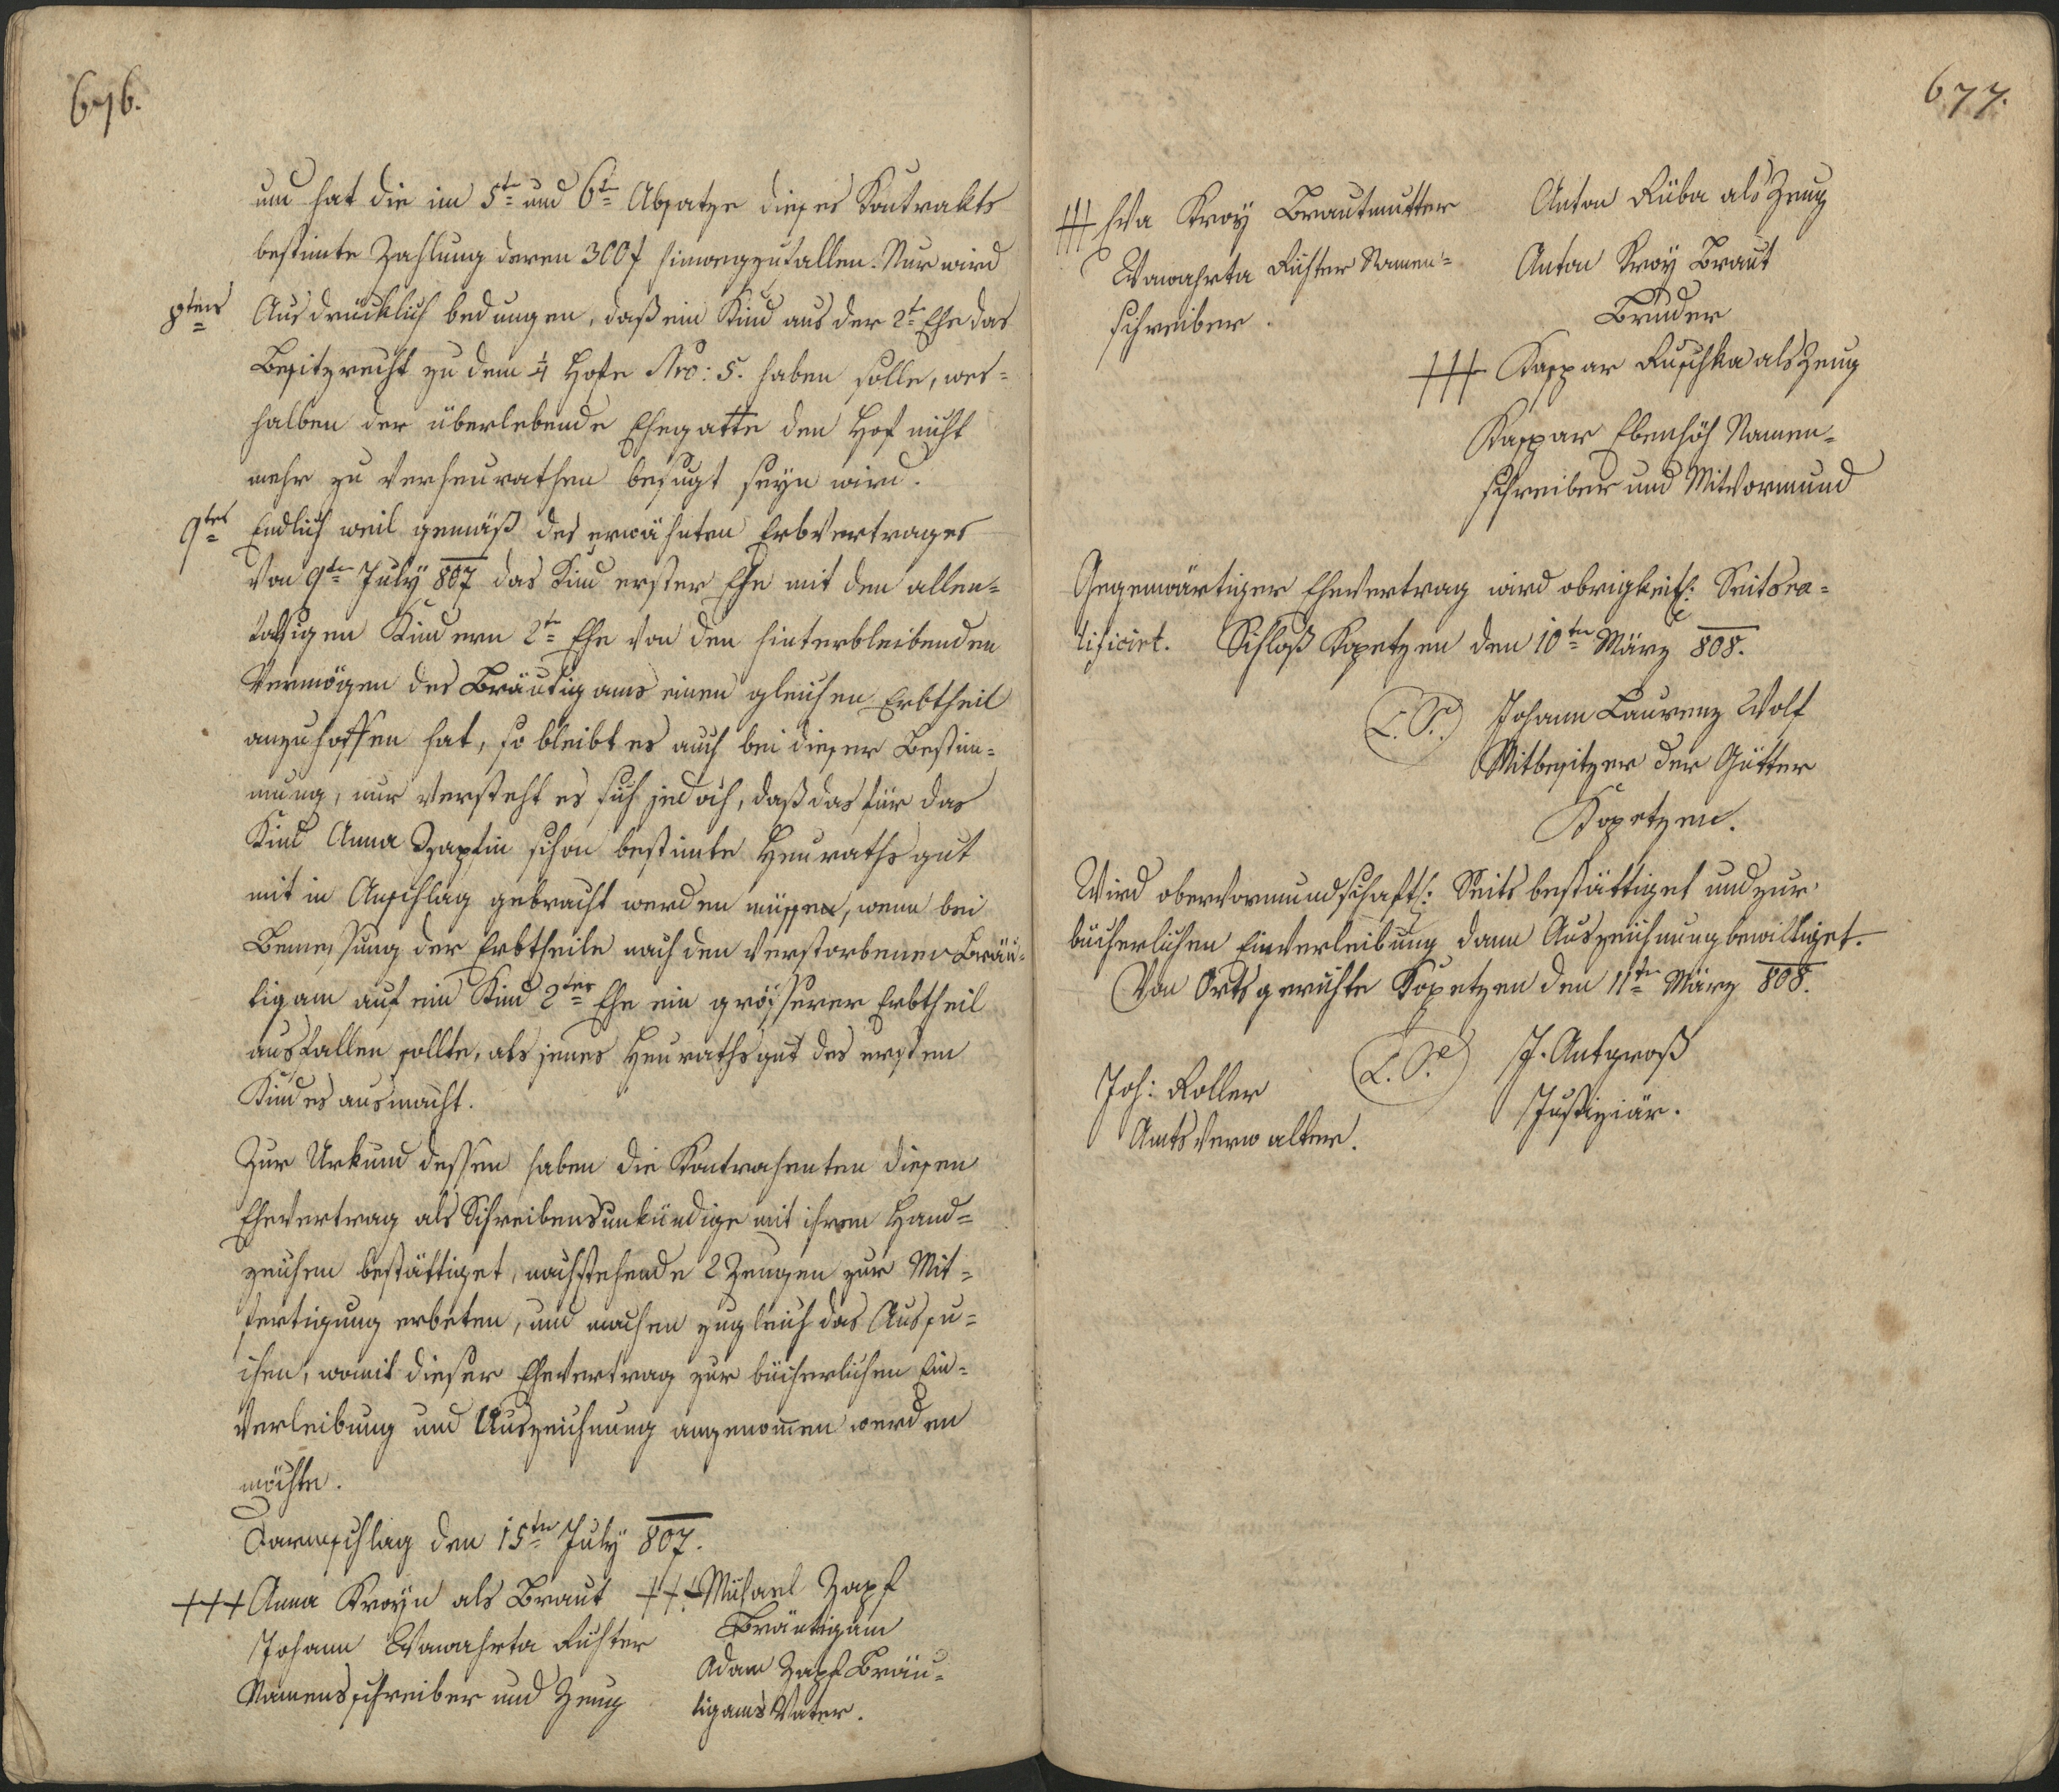 676.
um hat die im 5tn und 6tn Absatze dieses Kontrakts
bestimte Zahlung deren 300f hinwegzufallen. Nur wird
8tens Ausdrücklich bedungen, daß ein Kind aus der 2tn Ehe das
Besitzrecht zu dem 1/4 Hofe Nro: 5. haben solle, wes-
halben der überlebende Ehegatte den Hof nicht
mehr zu verheurathen befugt seyn wird.
9tes Endlich weil gemäß des erwähnten Erbvertrages
von 9tn July 807 das Kind erster Ehe mit den allen-
falsigen Kindern 2tn Ehe von den hinterbleibenden
Vermögen des Bräutigams einen gleichen Erbtheil
anzuhoffen hat, so bleibt es auch bei dieser Bestim-
mung, nur versteht es sich jedoch, daß das für das
Kind Anna Zapfin schon bestimte Heurathsgut
mit in Anschlag gebracht werden müssen, wenn bei
Bemessung der Erbtheile nach den verstorbenen Bräu-
tigam auf ein Kind 2ter Ehe ein grösserer Erbtheil
ausfallen sollte, als jenes Heurathsgut des ersten
Kindes ausmacht.
Zur Urkund dessen haben die Kontrahenten diesen
Ehevertrag als Schreibensunkündige mit ihrem Hand-
zeichen bestättiget, nachstehende 2 Zeugen zur Mit-
fertigung erbeten, und machen zugleich das Ansu-
chen, womit dieser Ehevertrag zur bücherlichen Ein-
verleibung und Auszeichnung angenommen werden
möchte.
den 15tn July 807.
+++ Anna Kroyn als Braut +++ Michael Zapf
Bräutigam
Johann Wawahrta Richter
Adam Zapf Bräu-
Namensschreiber und Zeug
tigams Vater.
677.
+++ Eva Kroy Brautmutter Anton Rüba als Zeug
Wawahrta Richter Namen-
schreiber.
Anton Kroy Braut
Bruder
+++ Kaspar Ruschka als Zeug
Kaspar Ebenhöh Namen-
schreiber und Mitvormund
Gegenwärtiger Ehevertrag wird obrigkeitl: Seits ra-
tificirt. Schloß Kopetzen den 10tn März 808.
L. S. Johann Laurenz Wolf
Mitbesitzer der Gütter
Kopetzen.
Wird obervormundschaftl: Seits bestättiget und zur
bücherlichen Einverleibung dann Auszeichnung bewilliget.
Von Ortsgerichte Kopetzen den 11tn März 808.
L. S. J. Antgroß
Justiziär.
Joh: Roller
Amtsverwalter.